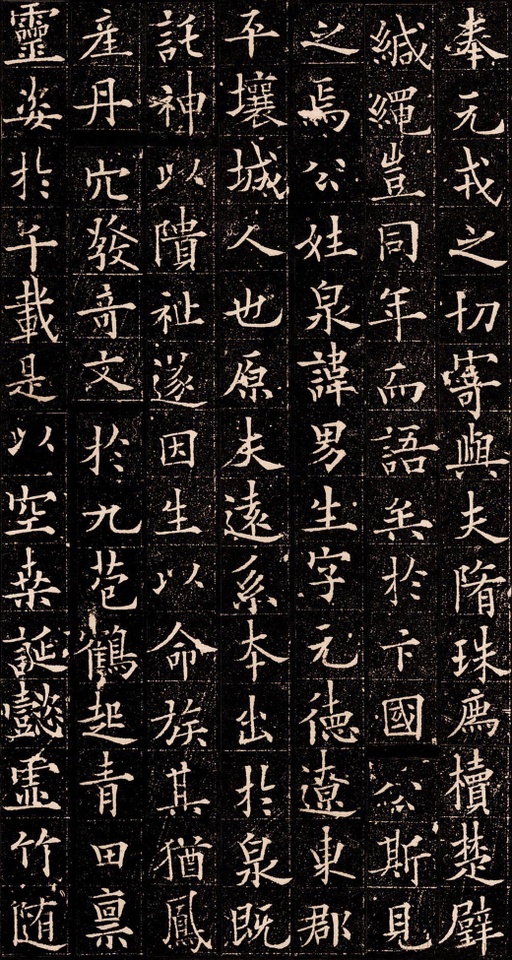 奉元戎之切寄與夫隋珠廌櫝楚璧
緘繩豈同年而語矣於卞國公斯見
之焉公姓泉諱男生字元德遼東郡
平壤城人也原夫遠系本出於泉既
託神以隤祉遂因生以命族其猶鳳
產丹穴發奇文於九苞鶴起青田稟
靈姿於千載是以空桒誕懿虛竹隨